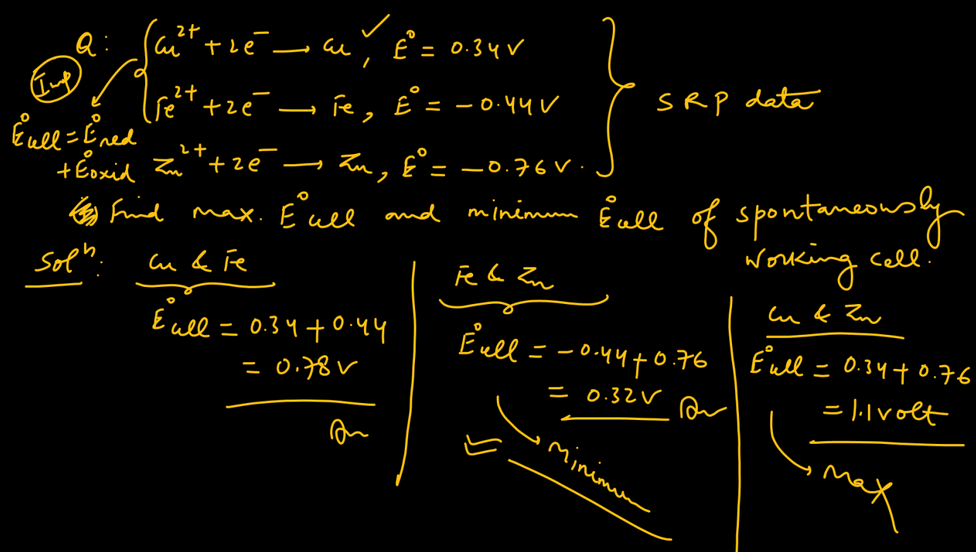 Q: Cu²⁺ + 2e⁻ ⟶ Cu ✓, E° = 0.34 V
Imp
Fe²⁺ + 2e⁻ ⟶ Fe, E° = -0.44 V
SRP data
E°cell = E°red
+ E°oxid
Zn²⁺ + 2e⁻ ⟶ Zn, E° = -0.76 V.
Find max. E°cell and minimum E°cell of spontaneously
working cell.
Solⁿ:
Cu & Fe
E°cell = 0.34 + 0.44
= 0.78 V
An
Fe & Zn
E°cell = -0.44 + 0.76
= 0.32 V An
Minimum
Cu & Zn
E°cell = 0.34 + 0.76
= 1.1 volt
Max